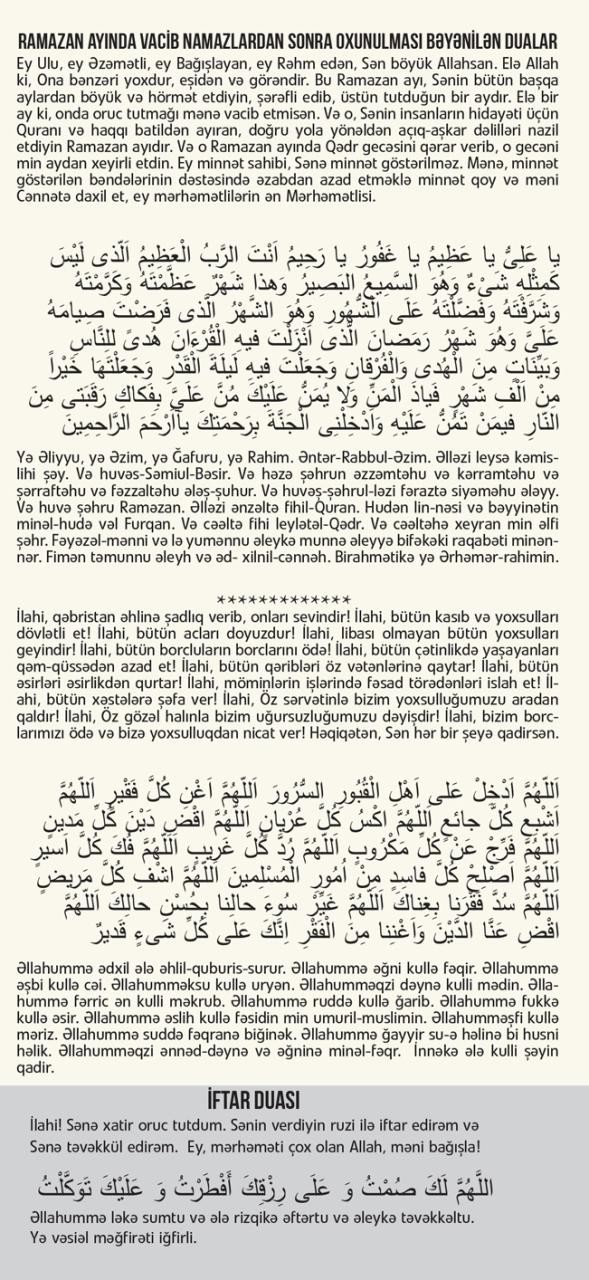 RAMAZAN AYINDA VACİB NAMAZLARDAN SONRA OXUNULMASI BƏYƏNİLƏN DUALAR
Ey Ulu, ey Əzəmətli, ey Bağışlayan, ey Rəhm edən, Sən böyük Allahsan. Elə Allah
ki, Ona bənzəri yoxdur, eşidən və görəndir. Bu Ramazan ayı, Sənin bütün başqa
aylardan böyük və hörmət etdiyin, şərəfli edib, üstün tutduğun bir aydır. Elə bir
ay ki, onda oruc tutmağı mənə vacib etmisən. Və o, Sənin insanların hidayəti üçün
Quranı və haqqı batildən ayıran, doğru yola yönəldən açıq-aşkar dəlilləri nazil
etdiyin Ramazan ayıdır. Və o Ramazan ayında Qədr gecəsini qərar verib, o gecəni
min aydan xeyirli etdin. Ey minnət sahibi, Sənə minnət göstərilməz. Mənə, minnət
göstərilən bəndələrinin dəstəsində əzabdan azad etməklə minnət qoy və məni
Cənnətə daxil et, ey mərhəmətlilərin ən Mərhəmətlisi.
يا عَلِىُّ يا عَظِيمُ يا غَفُورُ يا رَحِيمُ اَنْتَ الرَّبُّ الْعَظِيمُ اَلّذى لَيْسَ
كَمِثْلِهِ شَىْءٌ وَهُوَ السَّمِيعُ البَصِيرُ وَهذا شَهْرٌ عَظَّمْتَهُ وَكَرَّمْتَهُ
وَشَرَّفْتَهُ وَفَضَّلْتَهُ عَلَى الْشُّهُورِ وَهُوَ الشَّهْرُ الَّذى فَرَضْتَ صِيامَهُ
عَلَىَّ وَهُوَ شَهْرُ رَمَضانَ الَّذى اَنْزَلْتَ فيهِ الْقُرْءَانَ هُدىً لِلنَّاسِ
وَبَيِّناتٍ مِنَ الْهُدى وَالْفُرْقانِ وَجَعَلْتَ فيهِ لَيلَةَ الْقَدْرِ وَجَعَلْتَهَا خَيْراً
مِنْ اَلْفِ شَهْرٍ فَياذَ الْمَنِّ وَلا يُمَنُّ عَلَيْكَ مُنَّ عَلَىَّ بِفَكاكِ رَقَبَتى مِنَ
النّارِ فيمَنْ تَمُنُّ عَلَيْهِ وَادْخِلْنِى الْجَنَّةَ بِرَحْمَتِكَ ياَاَرْحَمَ الرَّاحِمِينَ
Yə Əliyyu, yə Əzim, yə Ğafuru, yə Rahim. Əntər-Rabbul-Əzim. Əlləzi leysə kəmis-
lihi şəy. Və huvəs-Səmiul-Bəsir. Və həzə şəhrun əzzəmtəhu və kərramtəhu və
şərraftəhu və fəzzaltəhu ələş-şuhur. Və huvəş-şəhrul-ləzi fəraztə siyəməhu ələyy.
Və huvə şəhru Raməzan. Əlləzi ənzəltə fihil-Quran. Hudən lin-nəsi və bəyyinətin
minəl-hudə vəl Furqan. Və cəəltə fihi leylətəl-Qədr. Və cəəltəhə xeyran min əlfi
şəhr. Fəyəzəl-mənni və lə yumənnu əleykə munnə əleyyə bifəkəki raqabəti minən-
nər. Fimən təmunnu əleyh və əd- xilnil-cənnəh. Birahmətikə yə Ərhəmər-rahimin.
*************
İlahi, qəbristan əhlinə şadlıq verib, onları sevindir! İlahi, bütün kasıb və yoxsulları
dövlətli et! İlahi, bütün acları doyuzdur! İlahi, libası olmayan bütün yoxsulları
geyindir! İlahi, bütün borcluların borclarını ödə! İlahi, bütün çətinlikdə yaşayanları
qəm-qüssədən azad et! İlahi, bütün qəribləri öz vətənlərinə qaytar! İlahi, bütün
əsirləri əsirlikdən qurtar! İlahi, möminlərin işlərində fəsad törədənləri islah et! İl-
ahi, bütün xəstələrə şəfa ver! İlahi, Öz sərvətinlə bizim yoxsulluğumuzu aradan
qaldır! İlahi, Öz gözəl halınla bizim uğursuzluğumuzu dəyişdir! İlahi, bizim borc-
larımızı ödə və bizə yoxsulluqdan nicat ver! Həqiqətən, Sən hər bir şeyə qadirsən.
اَللّهُمَّ اَدْخِلْ عَلى اَهْلِ الْقُبُورِ السُّرُورَ اَللّهُمَّ اَغْنِ كُلَّ فَقيرٍ اَللّهُمَّ
اَشْبِع كُلَّ جائِعٍ اَللّهُمَّ اكْسُ كُلَّ عُرْيانٍ اَللّهُمَّ اقْضِ دَيْنَ كُلِّ مَدينٍ
اَللّهُمَّ فَرِّجْ عَنْ كُلِّ مَكْرُوبٍ اَللّهُمَّ رُدَّ كُلَّ غَريبٍ اَللّهُمَّ فُكَّ كُلَّ اَسيرٍ
اَللّهُمَّ اَصْلِحْ كُلَّ فاسِدٍ مِنْ اُمُورِ الْمُسْلِمينَ اَللّهُمَّ اشْفِ كُلَّ مَريضٍ
اَللّهُمَّ سُدَّ فَقْرَنا بِغِناكَ اَللّهُمَّ غَيِّرْ سُوءَ حالِنا بِحُسْنِ حالِكَ اَللّهُمَّ
اقْضِ عَنَّا الدَّيْنَ وَاَغْنِنا مِنَ الْفَقْرِ اِنَّكَ عَلى كُلِّ شَىءٍ قَديرٌ
Əllahummə ədxil ələ əhlil-quburis-surur. Əllahummə əğni kullə fəqir. Əllahummə
əşbi kullə cəi. Əllahumməksu kullə uryən. Əllahumməqzi dəynə kulli mədin. Əlla-
hummə fərric ən kulli məkrub. Əllahummə ruddə kullə ğarib. Əllahummə fukkə
kullə əsir. Əllahummə əslih kullə fəsidin min umuril-muslimin. Əllahumməşfi kullə
məriz. Əllahummə suddə fəqranə biğinək. Əllahummə ğayyir su-ə həlinə bi husni
həlik. Əllahumməqzi ənnəd-dəynə və əğninə minəl-fəqr. İnnəkə ələ kulli şəyin
qadir.
İFTAR DUASI
İlahi! Sənə xatir oruc tutdum. Sənin verdiyin ruzi ilə iftar edirəm və
Sənə təvəkkül edirəm. Ey, mərhəməti çox olan Allah, məni bağışla!
اللَّهُمَّ لَكَ صُمْتُ وَ عَلَى رِزْقِكَ أَفْطَرْتُ وَ عَلَيْكَ تَوَكَّلْتُ
Əllahummə ləkə sumtu və ələ rizqikə əftərtu və əleykə təvəkkəltu.
Yə vəsiəl məğfirəti iğfirli.